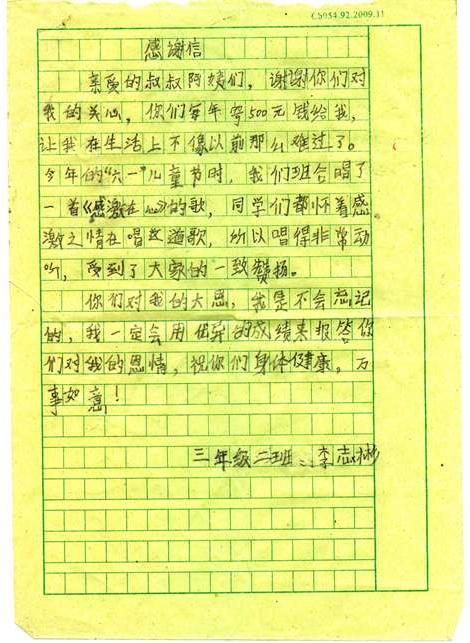 CS054.92.2009.11
感谢信
亲爱的叔叔阿姨们，谢谢你们对
我的关心，你们每年寄500元钱给我，
让我在生活上不像以前那么难过了。
今年的“六一”儿童节时，我们班合唱了
一首《感激在心》的歌，同学们都怀着感
激之情在唱这道歌，所以唱得非常动
听，受到了大家的一致赞扬。
你们对我的大恩，我是不会忘记
的，我一定会用优异的成绩来报答你
们对我的恩情，祝你们身体健康，万
事如意！
三年级二班：李志彬